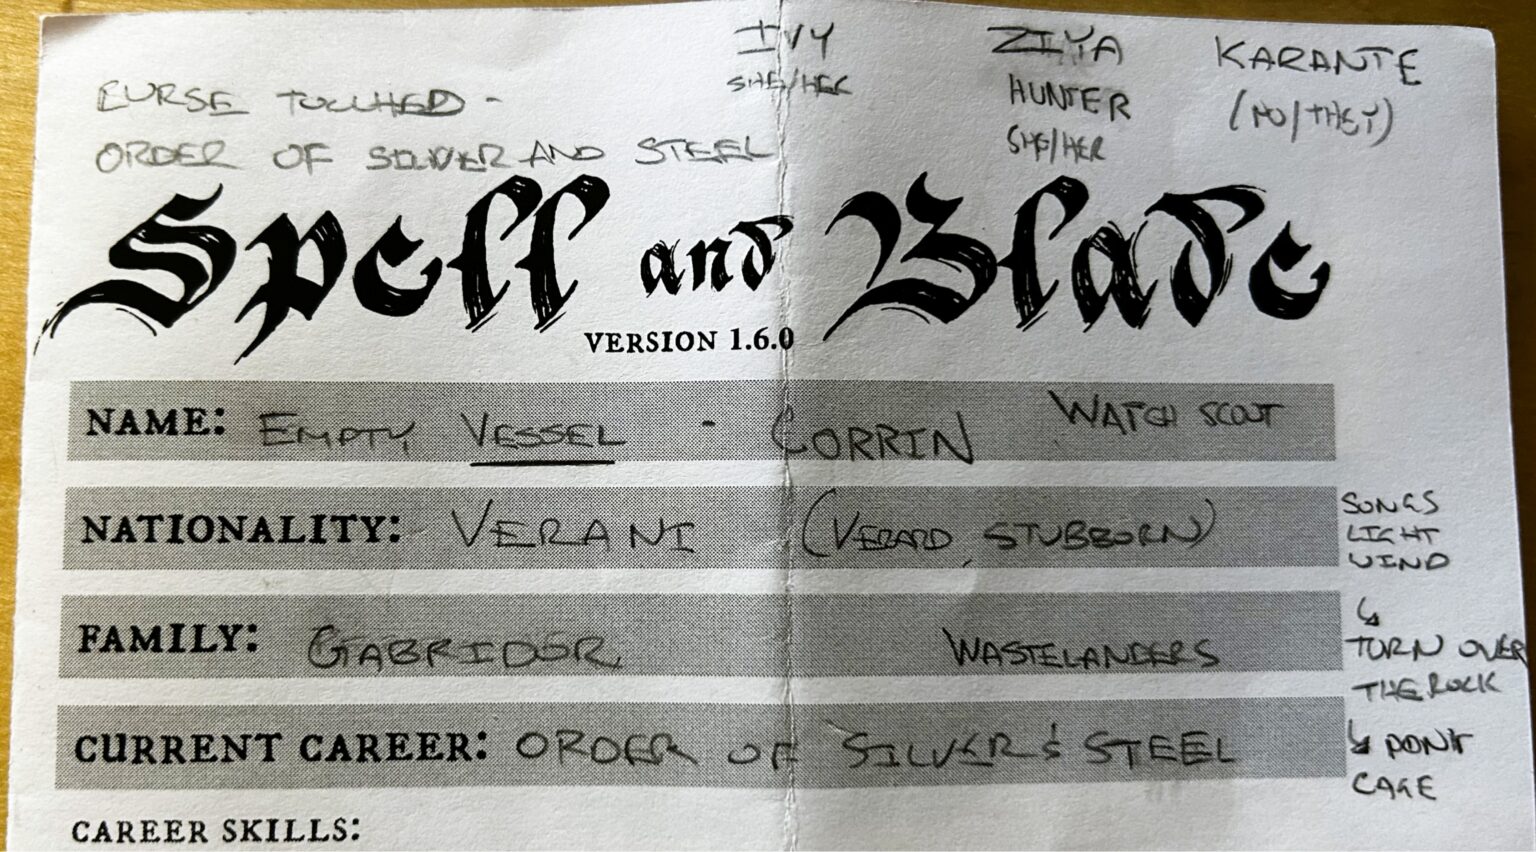 IVY
SHE/HER
ZIYA
HUNTER
SHE/HER
KARANTE
(MO/THEY)
CURSE TOUCHED -
ORDER OF SILVER AND STEEL
Spell and Blade
VERSION 1.6.0
NAME: EMPTY VESSEL - CORRIN WATCH SCOUT
NATIONALITY: VERANI (VERARD, STUBBORN)
SONGS
LIGHT
WIND
FAMILY: GABRIDOR WASTELANDERS
↳
TURN OVER
THE ROCK
CURRENT CAREER: ORDER OF SILVER & STEEL
↳ DON'T
CARE
CAREER SKILLS: